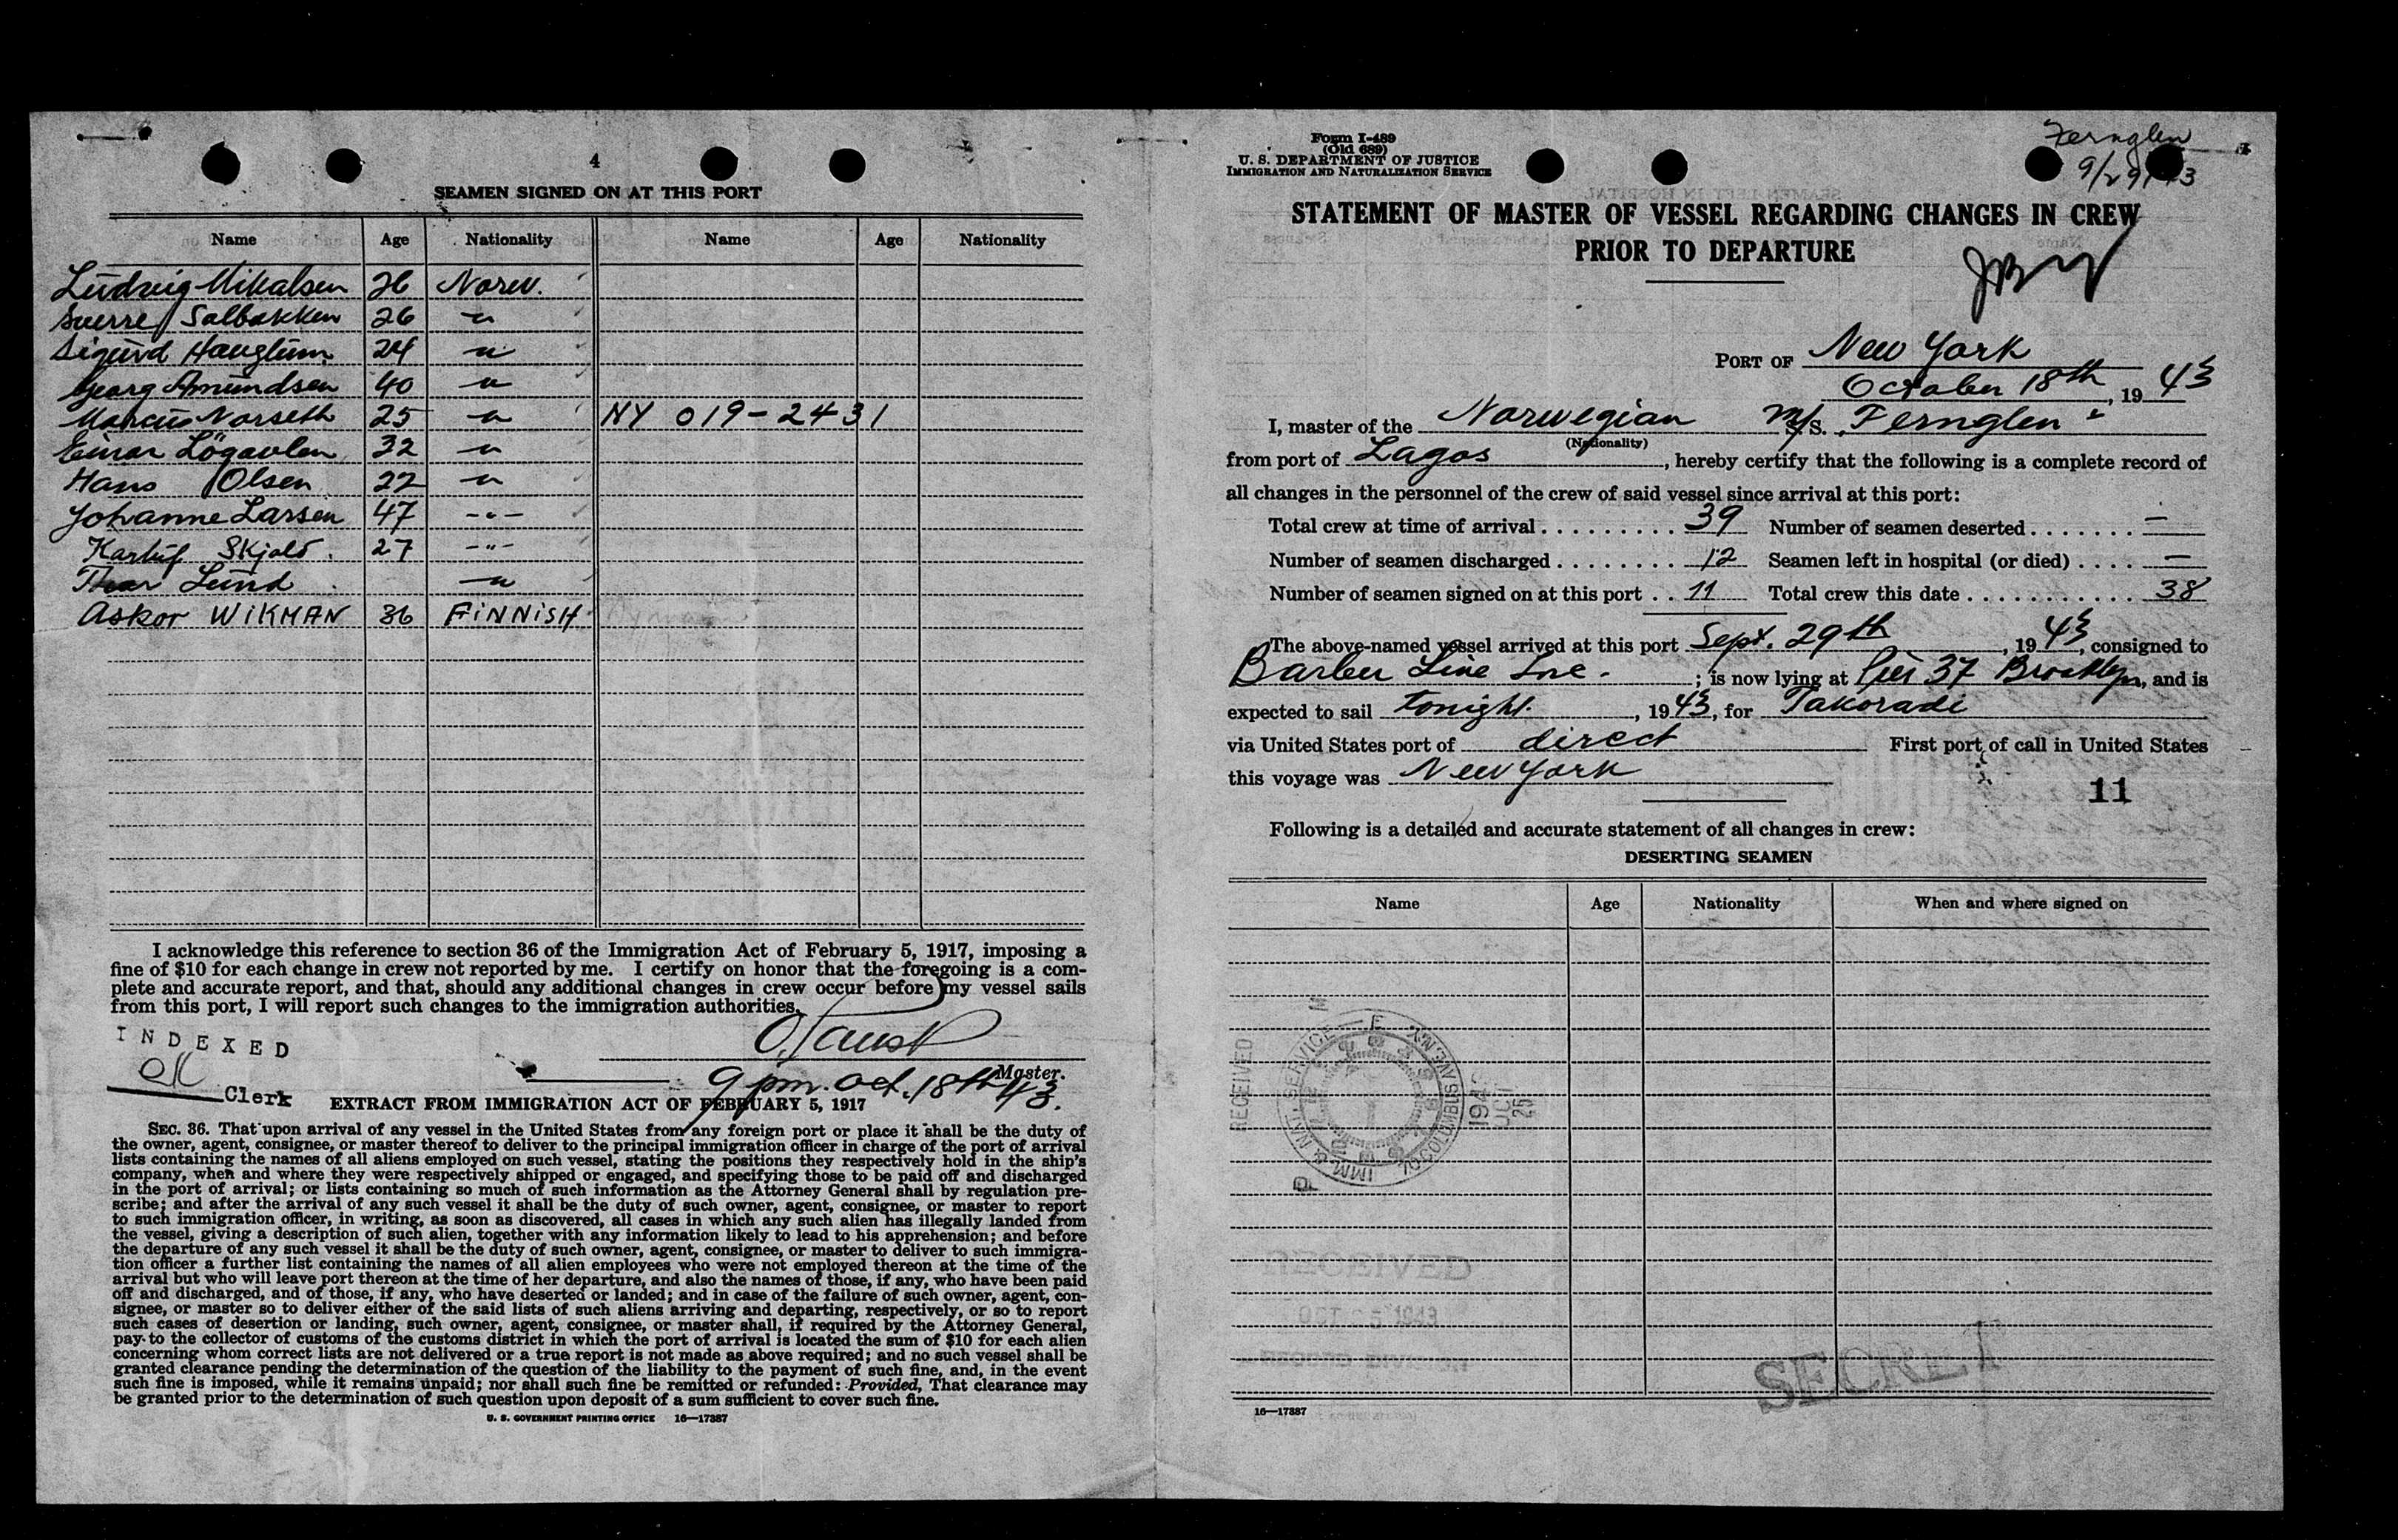 4
SEAMEN SIGNED ON AT THIS PORT
Name Age Nationality Name Age Nationality
Ludvig Mikalsen 26 Norw.
Sverre Solbakken 26 -"-
Sigurd Hauglum 24 -"-
Georg Amundsen 40 -"-
Marcus Norseth 25 -"- NY 019-2431
Einar Lögavlen 32 -"-
Hans Olsen 22 -"-
Johanne Larsen 47 -"-
Skjold. 27 -"-
Thor Lund -"-
Askor WIKMAN 36 FINNISH
I acknowledge this reference to section 36 of the Immigration Act of February 5, 1917, imposing a
fine of $10 for each change in crew not reported by me. I certify on honor that the foregoing is a com-
plete and accurate report, and that, should any additional changes in crew occur before my vessel sails
from this port, I will report such changes to the immigration authorities.
INDEXED
Clerk
Master.
9 pm. Oct. 18th 43.
EXTRACT FROM IMMIGRATION ACT OF FEBRUARY 5, 1917
SEC. 36. That upon arrival of any vessel in the United States from any foreign port or place it shall be the duty of
the owner, agent, consignee, or master thereof to deliver to the principal immigration officer in charge of the port of arrival
lists containing the names of all aliens employed on such vessel, stating the positions they respectively hold in the ship's
company, when and where they were respectively shipped or engaged, and specifying those to be paid off and discharged
in the port of arrival; or lists containing so much of such information as the Attorney General shall by regulation pre-
scribe; and after the arrival of any such vessel it shall be the duty of such owner, agent, consignee, or master to report
to such immigration officer, in writing, as soon as discovered, all cases in which any such alien has illegally landed from
the vessel, giving a description of such alien, together with any information likely to lead to his apprehension; and before
the departure of any such vessel it shall be the duty of such owner, agent, consignee, or master to deliver to such immigra-
tion officer a further list containing the names of all alien employees who were not employed thereon at the time of the
arrival but who will leave port thereon at the time of her departure, and also the names of those, if any, who have been paid
off and discharged, and of those, if any, who have deserted or landed; and in case of the failure of such owner, agent, con-
signee, or master so to deliver either of the said lists of such aliens arriving and departing, respectively, or so to report
such cases of desertion or landing, such owner, agent, consignee, or master shall, if required by the Attorney General,
pay to the collector of customs of the customs district in which the port of arrival is located the sum of $10 for each alien
concerning whom correct lists are not delivered or a true report is not made as above required; and no such vessel shall be
granted clearance pending the determination of the question of the liability to the payment of such fine, and, in the event
such fine is imposed, while it remains unpaid; nor shall such fine be remitted or refunded: Provided, That clearance may
be granted prior to the determination of such question upon deposit of a sum sufficient to cover such fine.
U. S. GOVERNMENT PRINTING OFFICE 16—17387
Form I-489
(Old 689)
U. S. DEPARTMENT OF JUSTICE
IMMIGRATION AND NATURALIZATION SERVICE
Fernglen
9/29/43
STATEMENT OF MASTER OF VESSEL REGARDING CHANGES IN CREW
PRIOR TO DEPARTURE
PORT OF New York
October 18th, 1943
I, master of the Norwegian M/S. "Fernglen"
(Nationality)
from port of Lagos, hereby certify that the following is a complete record of
all changes in the personnel of the crew of said vessel since arrival at this port:
Total crew at time of arrival 39 Number of seamen deserted —
Number of seamen discharged 12 Seamen left in hospital (or died) —
Number of seamen signed on at this port 11 Total crew this date 38
The above-named vessel arrived at this port Sept. 29th, 1943, consigned to
Barber Line Inc.; is now lying at Pier 37 Brooklyn, and is
expected to sail tonight, 1943, for Takoradi
via United States port of direct First port of call in United States
this voyage was New York
11
Following is a detailed and accurate statement of all changes in crew:
DESERTING SEAMEN
Name Age Nationality When and where signed on
RECEIVED
IMM. & NAT. SERVICE
70 COLUMBUS AVE. N.Y.
1943
OCT
25
SECRET
16—17387